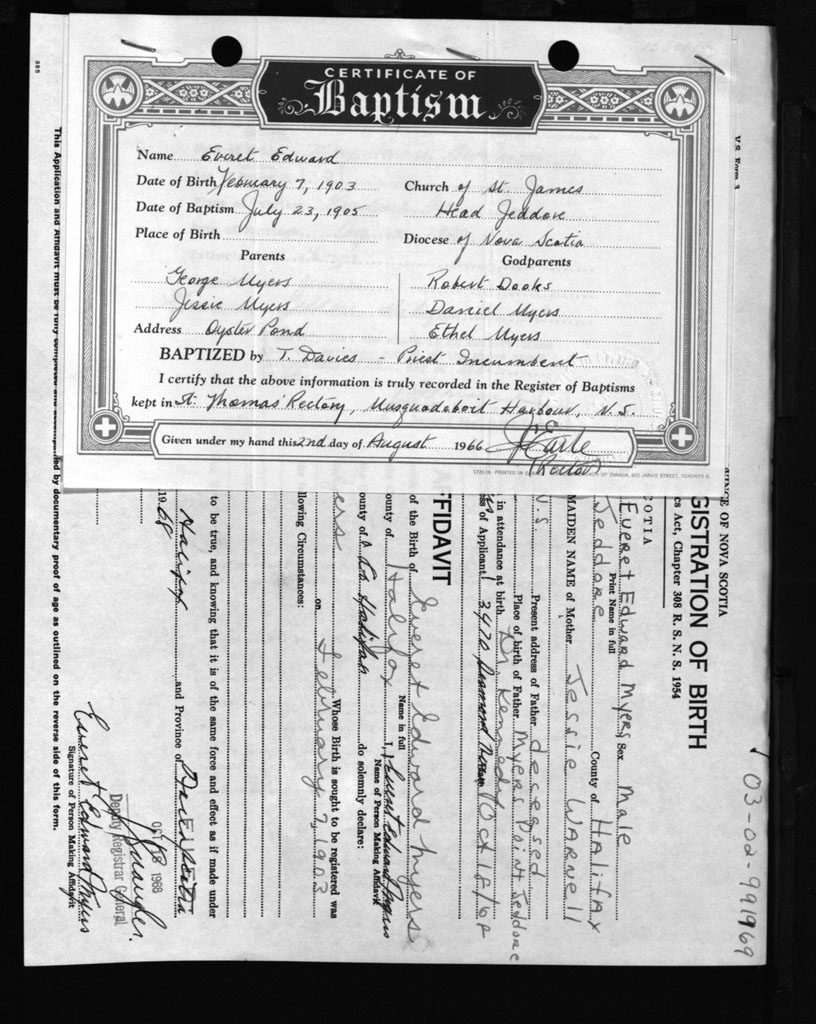 CERTIFICATE OF
Baptism
Name Everet Edward
Date of Birth February 7, 1903
Date of Baptism July 23, 1905
Place of Birth
Church of St. James
Head Jeddore
Diocese of Nova Scotia
Parents
George Myers
Jessie Myers
Address Oyster Pond
Godparents
Robert Dooks
Daniel Myers
Ethel Myers
BAPTIZED by T. Davies - Priest Incumbent
I certify that the above information is truly recorded in the Register of Baptisms
kept in St. Thomas' Rectory, Musquodoboit Harbour, N.S.
Given under my hand this 2nd day of August 1966 Earle
(Rector)
OF CANADA, 600 JARVIS STREET, TORONTO 5.
V.S. Form 3
OF NOVA SCOTIA
GISTRATION OF BIRTH
cs Act, Chapter 308 R. S. N. S. 1954
03-02-991969
COTIA
Everet Edward Myers Sex male
Print Name in full
Jeddore County of Halifax
MAIDEN NAME of Mother Jessie Warnell
N.S.
Present address of Father deceased
Place of birth of Father Myers Point Jeddore
in attendance at birth Dr Kennedy
of Applicant 3470 Oct 18/68
FFIDAVIT
of the Birth of Everet Edward Myers
Name in full
ounty of Halifax I, Everet Edward Myers
Name of Person Making Affidavit
ounty of Halifax do solemnly declare:
Whose Birth is sought to be registered was
ers on February 7, 1903
llowing Circumstances:
to be true, and knowing that it is of the same force and effect as if made under
Halifax and Province of Nova Scotia
1968
OCT 18 1968
Deputy Registrar General
Everet Edward Myers
Signature of Person Making Affidavit
This Application and Affidavit must be fully completed and accompanied by documentary proof of age as outlined on the reverse side of this form.